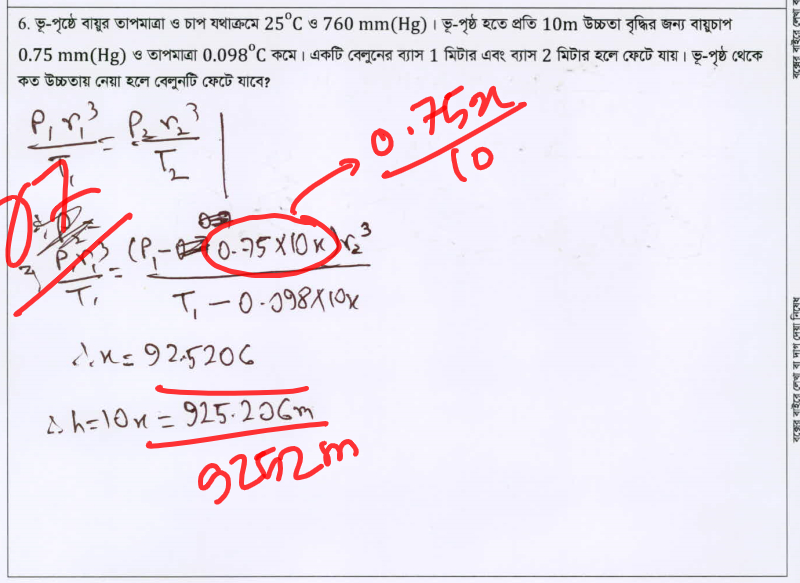 6. ভূ-পৃষ্ঠে বায়ুর তাপমাত্রা ও চাপ যথাক্রমে 25°C ও 760 mm(Hg)। ভূ-পৃষ্ঠ হতে প্রতি 10m উচ্চতা বৃদ্ধির জন্য বায়ুচাপ
0.75 mm(Hg) ও তাপমাত্রা 0.098°C কমে। একটি বেলুনের ব্যাস 1 মিটার এবং ব্যাস 2 মিটার হলে ফেটে যায়। ভূ-পৃষ্ঠ থেকে
কত উচ্চতায় নেয়া হলে বেলুনটি ফেটে যাবে?
P₁r₁³/T₁ = P₂r₂³/T₂
0.75x/10
P₁r₁³/T₁ = (P₁ - 0.75×10x)r₂³/T₁ - 0.098×10x
∴ x = 92.5206
∴ h = 10x = 925.206m
9252m
বক্সের বাইরে লেখা বা দাগ দেয়া নিষেধ